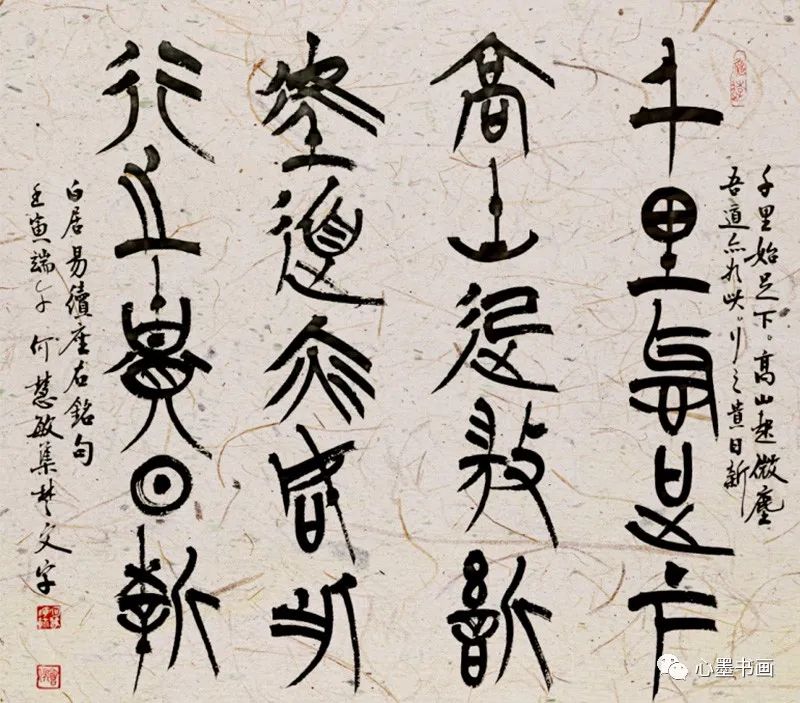 千里始足下。高山起微塵
吾道亦如此、行之貴日新
千里始足下
高山起微塵
吾道亦如此
行之貴日新
白居易續座右銘句
壬寅端午何慧敏集楚文字
心墨书画